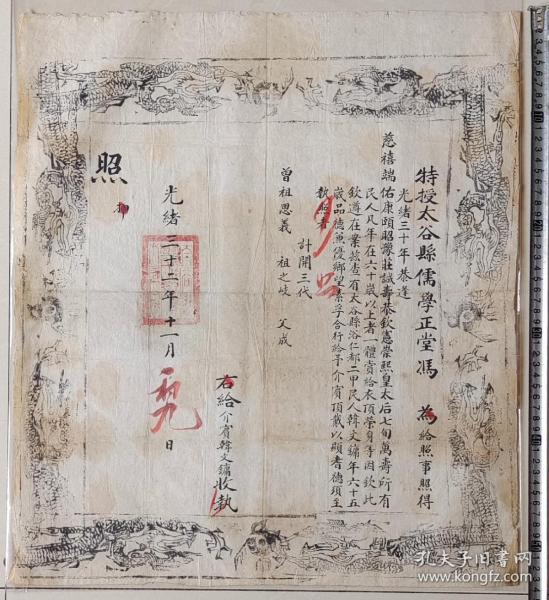 特授太谷縣儒學正堂馮 為給照事照得
光緒三十年恭逢
慈禧端佑康頤昭豫莊誠壽恭欽獻崇熙皇太后七旬萬壽所有
民人凡年在六十歲以上者一體賞給衣頂榮身等因欽此
欽遵在案茲查有太谷縣浴仁都二甲民人韓文鏽年六十五
歲品德兼優鄉望素孚合行給予介賓頂戴以顯耆德須至
執照者
計開三代
曾祖思義 祖之岐 父成
右給介賓韓文鏽收執
光緒三十二年十一月 日
照
孔夫子旧书网
www.kongfz.com